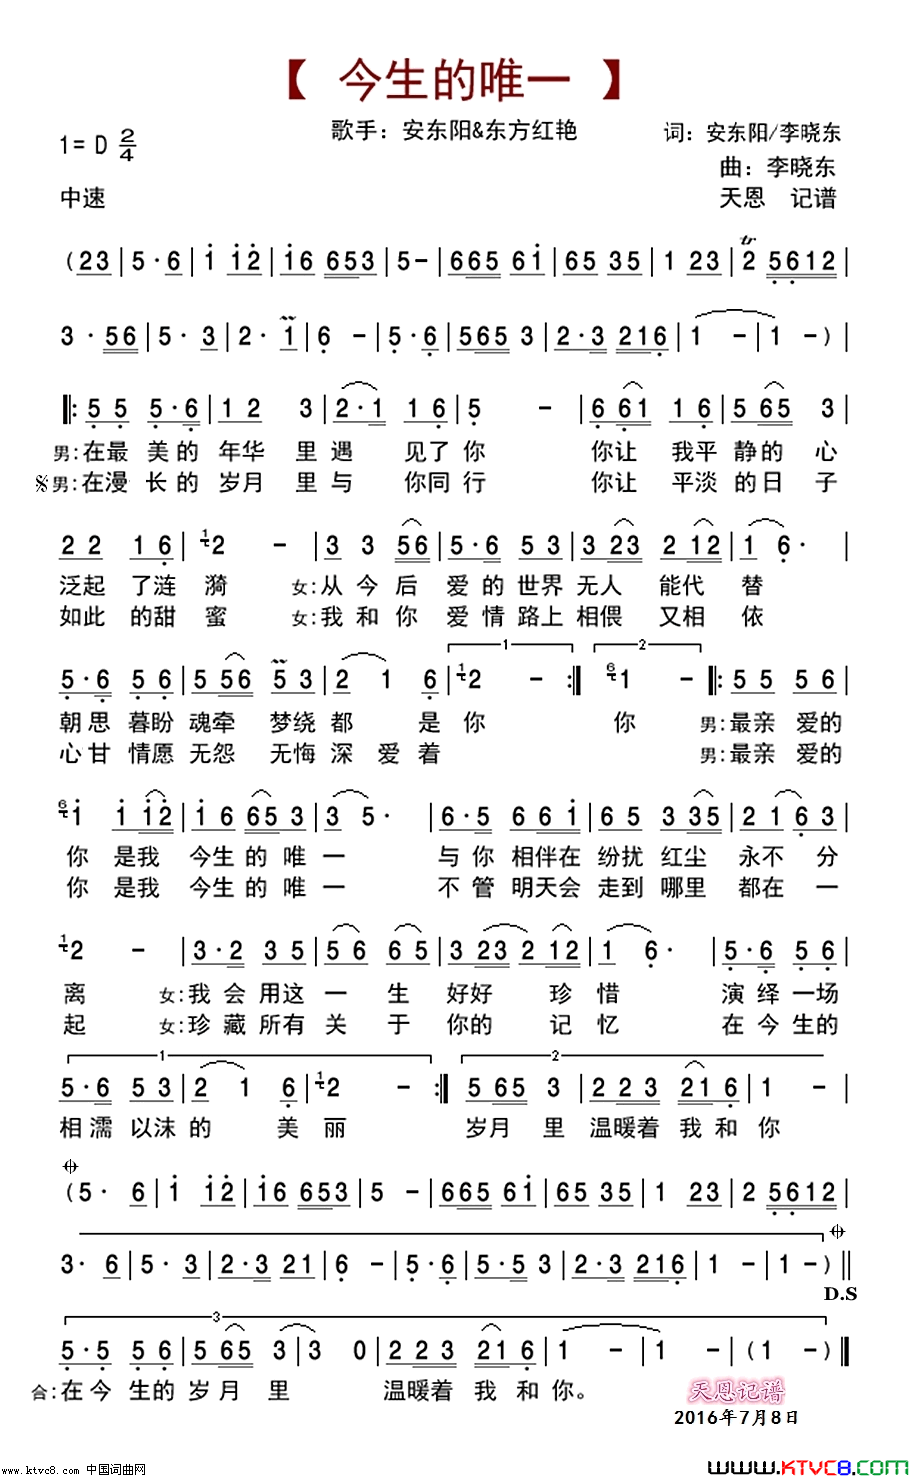 【 今生的唯一 】
歌手：安东阳&东方红艳
词：安东阳/李晓东
1= D 2/4
曲：李晓东
中速
天恩 记谱
(23|5·6|1 12|16 653|5-|665 61|65 35|1 23|tr 2 5612|
3·56|5·3|2·1|6-|5·6|565 3|2·3 216|1-|1-)|
||:5 5 5·6|12 3|2·1 16|5-|6 61 16|5 65 3|
男:在最 美的 年华 里遇 见了你 你让 我平 静的 心
男:在漫 长的 岁月 里与 你同行 你让 平淡 的日 子
22 16|1 2 -|3 3 56|5·6 53|3 23 2 12|1 6·|
泛起 了涟 漪 女:从 今 后 爱的 世界 无人 能代 替
如此 的甜 蜜 女:我 和 你 爱情 路上 相偎 又相 依
1 2
5·6 56|5 56 5 3|2 1 6|1 2 - :|| 6 1 - ||:55 56|
朝思 暮盼 魂牵 梦绕 都 是 你 你 男:最亲 爱的
心甘 情愿 无怨 无悔 深 爱 着 男:最亲 爱的
6 1 1 12|16 65 3|3 5·|6·5 561|65 3 35|21 63|
你 是我 今生 的 唯 一 与你 相伴在 纷扰 红尘 永不 分
你 是我 今生 的 唯 一 不管 明天会 走到 哪里 都在 一
1 2 -|3·2 35|56 65|3 23 2 12|1 6·|5·6 56|
离 女:我会 用这 一 生 好好 珍 惜 演绎 一场
起 女:珍藏 所有 关 于 你的 记 忆 在今 生的
1 2
5·6 53|2 1 6|1 2 - :||5 65 3|22 3 21 6|1 -|
相濡 以沫 的 美 丽 岁月 里 温暖着 我 和 你
(5·6|1 12|16 653|5 -|665 61|565 35|1 23|2 5612|
3·6|5·3|2·3 21|6 -|5·6|5·65 3|2·3 216|1 -|1 -)||
D.S
3
5·5 56|5 65 3|3 0|22 3 21 6|1 -|1 -|(1 -)||
合:在今 生的 岁 月 里 温暖着 我 和 你。
天恩记谱
2016年7月8日
www.ktvc8.com 中国词曲网
www.KTVC8.com